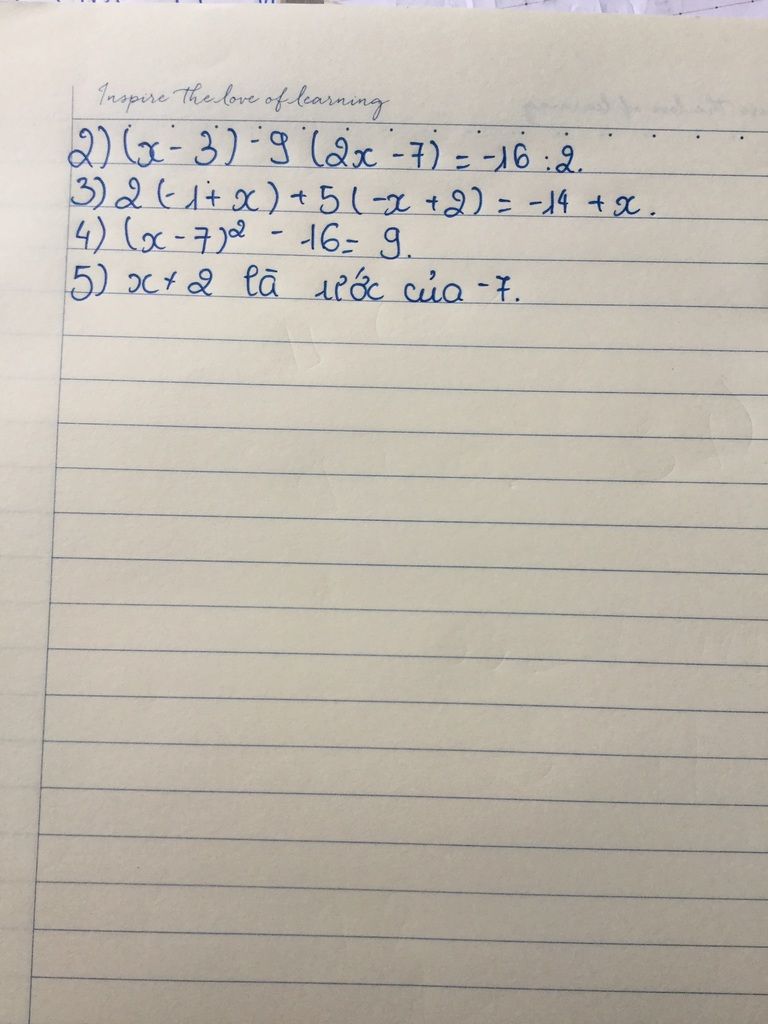 Inspire The love of learning
2) (x - 3) - 9 (2x - 7) = -16 : 2.
3) 2 (-1 + x) + 5 (-x + 2) = -14 + x.
4) (x - 7)² - 16 = 9.
5) x + 2 là ước của -7.